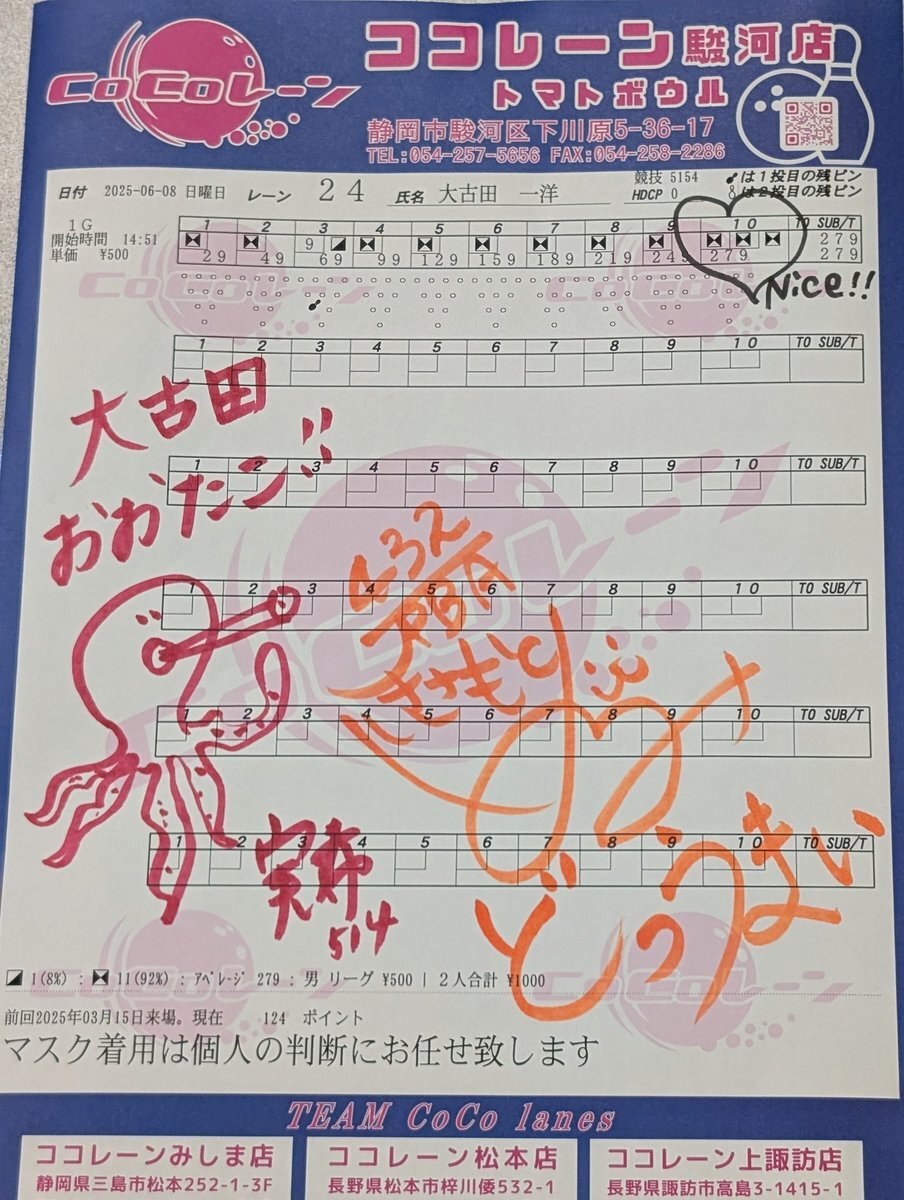 CoCoレーン
ココレーン駿河店
トマトボウル
静岡市駿河区下川原5-36-17
TEL:054-257-5656 FAX:054-258-2286
日付 2025-06-08 日曜日 レーン 24 氏名 大古田 一洋 競技 5154 は1投目の残ピン
HDCP 0 8は2投目の残ピン
1G 1 2 3 4 5 6 7 8 9 10 TO SUB/T
開始時間 14:51 9 279
単価 ¥500 29 49 69 99 129 159 189 219 249 279 279
Nice!!
1 2 3 4 5 6 7 8 9 10 TO SUB/T
大古田
1 2 3 4 5 6 7 8 9 10 TO SUB/T
おおたこ!!
432
JPBA
1 2 3 4 5 6 7 8 9 10 TO SUB/T
1 2 3 4 5 6 7 8 9 10 TO SUB/T
1 2 3 4 5 6 7 8 9 10 TO SUB/T
514
どうまい
1(8%) : 11(92%) : アベレージ 279 : 男 リーグ ¥500 | 2人合計 ¥1000
前回2025年03月15日来場。現在 124 ポイント
マスク着用は個人の判断にお任せ致します
TEAM CoCo lanes
ココレーンみしま店 ココレーン松本店 ココレーン上諏訪店
静岡県三島市松本252-1-3F 長野県松本市梓川倭532-1 長野県諏訪市高島3-1415-1